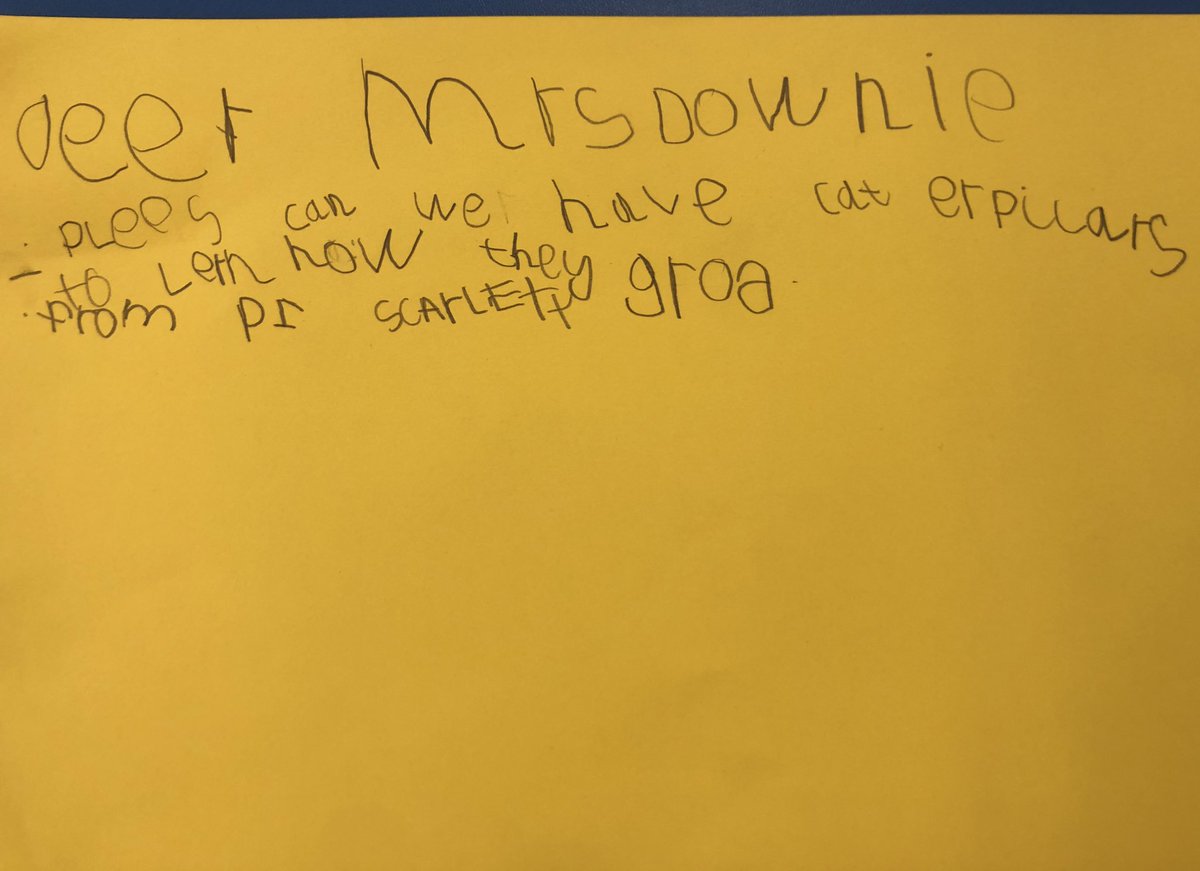 deer Mrs Downie
plees can we have caterpillars
to lern how they groa
from P1 SCARLEtt